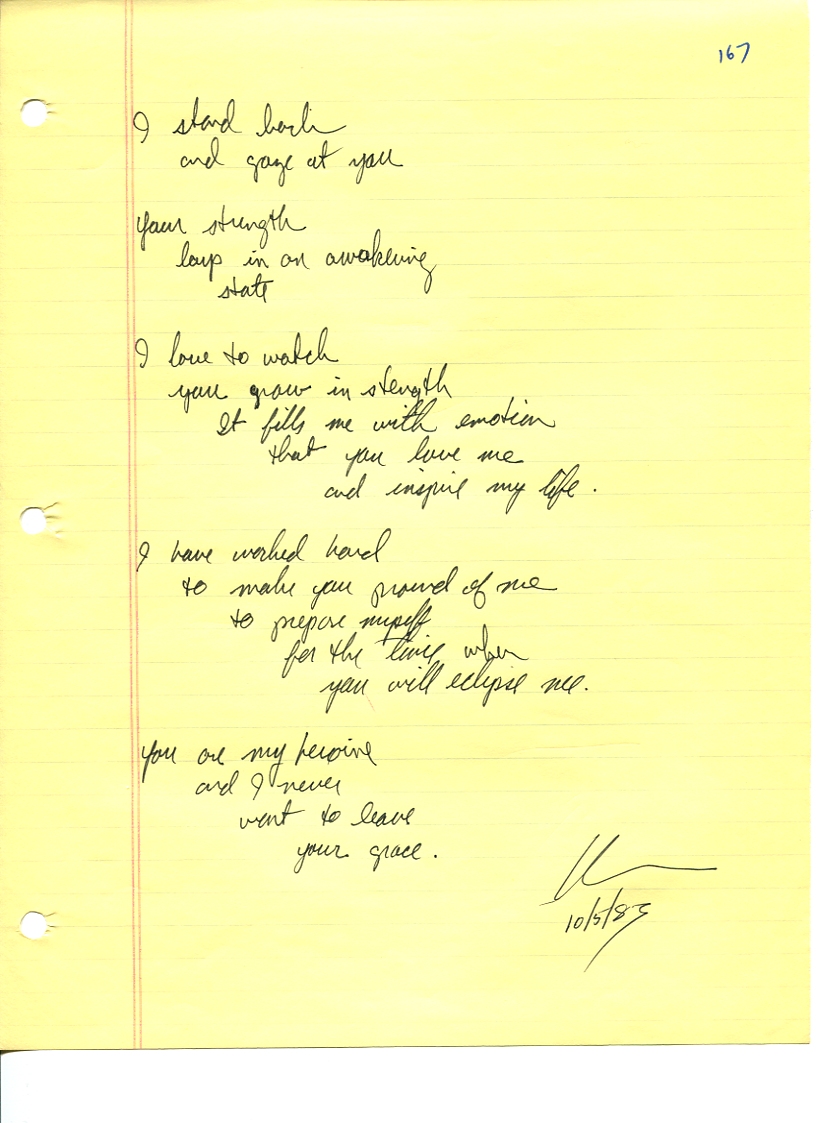 167
I stand back
and gaze at you
your strength
leap in an awakening
state
I love to watch
you grow in stength
It fills me with emotion
that you love me
and inspire my life.
I have worked hard
to make you proud of me
to prepare myself
for the time when
you will eclipse me.
you are my heroine
and I never
want to leave
your grace.
10/5/83